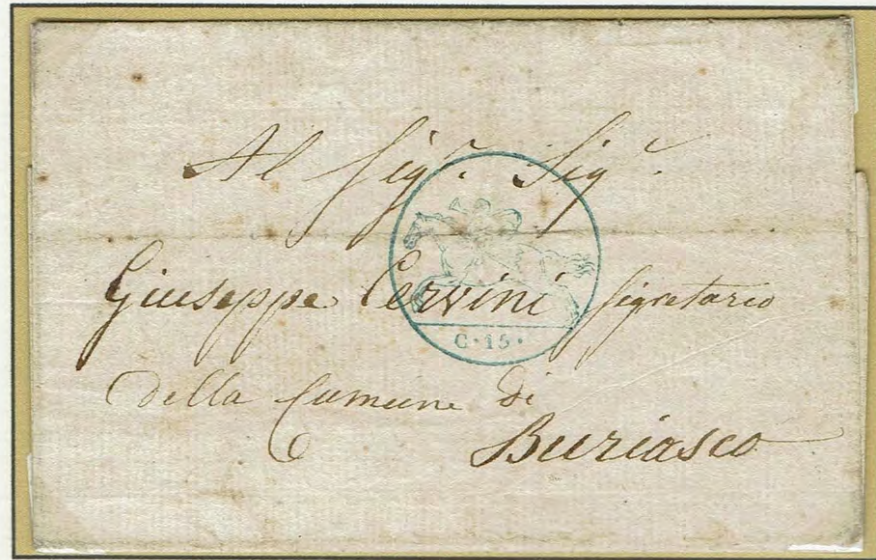 Al Sig.r Sig.r
Giuseppe Cervini Segretario
C·15·
della Comune di
Buriasco